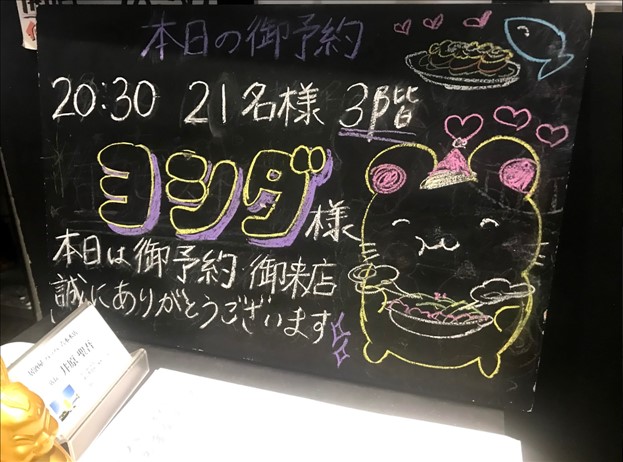 本日の御予約
20:30 21名様 3階
ヨシダ様
本日は御予約 御来店
誠にありがとうございます
井原 聖吾